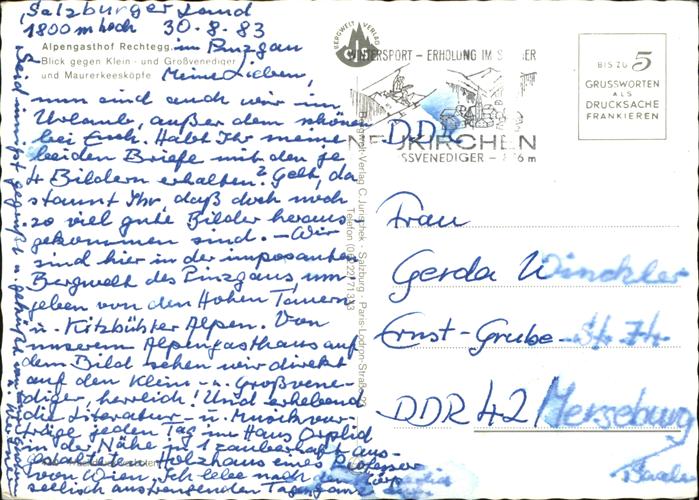 Salzburger Land
1800 m hoch 30.8.83
Alpengasthof Rechtegg, im Pinzgau
Blick gegen Klein- und Großvenediger
und Maurerkeesköpfe Meine Lieben,
nun sind auch wir im
Urlaub, außer dem schönen
bei Euch. Habt Ihr meine
beiden Briefe mit den je
4 Bildern erhalten? Gelt, da
staunt Ihr, daß doch noch
so viel gute Bilder heraus
gekommen sind. – Wir
sind hier in der imposanten
Bergwelt des Pinzgaus, um-
geben von den Hohen Tauern
u. Kitzbühler Alpen. Von
unserem Alpengasthaus auf
dem Bild sehen wir direkt
auf den Klein- u. Großvene-
diger, herrlich! Und erhebend
die Literatur- u. Musikvor-
träge jeden Tag im Haus Orplid
in der Nähe in 1 zauberhaft aus-
gestalteten Holzhaus eines Professor
von Wien. Ich lebe nach
seelisch anstrengenden Tagen ganz
Seid innigst gegrüßt u. geküßt von
BERGWELT VERLAG
WINTERSPORT – ERHOLUNG IM
NEUKIRCHEN
SSVENEDIGER –
BIS ZU 5
GRUSSWORTEN
ALS
DRUCKSACHE
FRANKIEREN
Bergwelt-Verlag C. Jurischek - Salzburg - Paris-Lodron-Straße
Telefon (0 62 22) 71 3 33
DDR
Frau
Gerda Winckler
Ernst-Grube-Str.
DDR 42 Merseburg